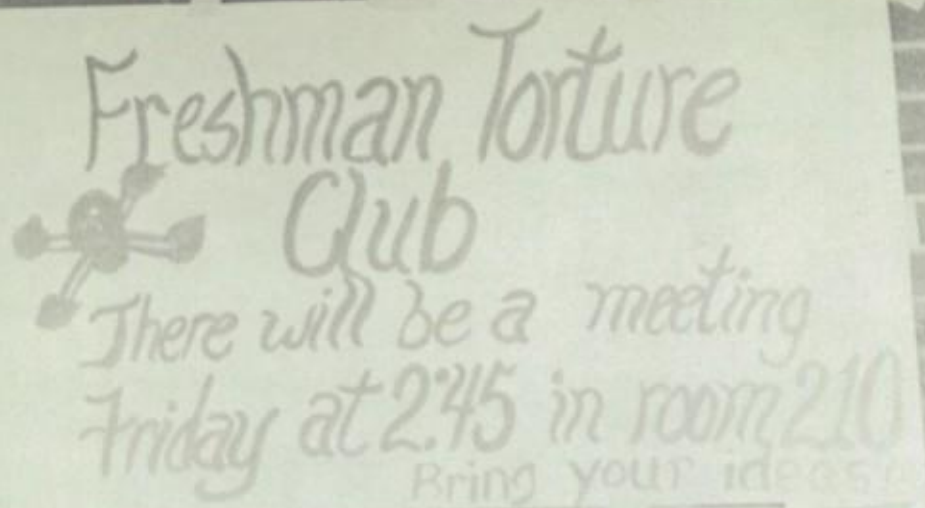 Freshman Torture
Club
There will be a meeting
Friday at 2:45 in room 210
Bring your ideas